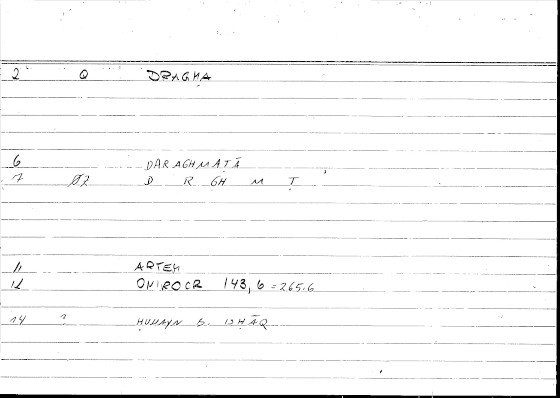 2 Q DRAGMA
6 DARAGHMAṬĀ
7 Ø2 D R GH M Ṭ
11 ARTEM
12 ONIROCR 143,6 = 265.6
14 ? ḤUNAYN B. ISḤĀQ